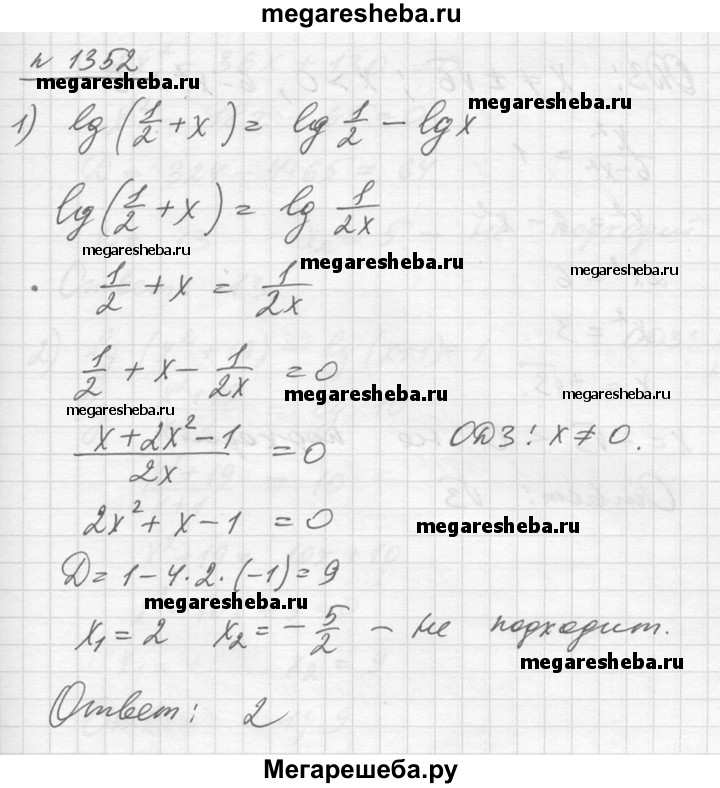 megaresheba.ru
№ 1352
megaresheba.ru
megaresheba.ru
1) lg(1/2 + x) = lg 1/2 - lg x
lg(1/2 + x) = lg 1/2x
megaresheba.ru
megaresheba.ru
megaresheba.ru
1/2 + x = 1/2x
1/2 + x - 1/2x = 0
megaresheba.ru
megaresheba.ru
megaresheba.ru
x + 2x² - 1 / 2x = 0 ОДЗ: x ≠ 0.
2x² + x - 1 = 0
megaresheba.ru
D = 1 - 4·2·(-1) = 9
megaresheba.ru
x₁ = 2 x₂ = -5/2 - не подходит.
megaresheba.ru
Ответ: 2
Мегарешеба.ру